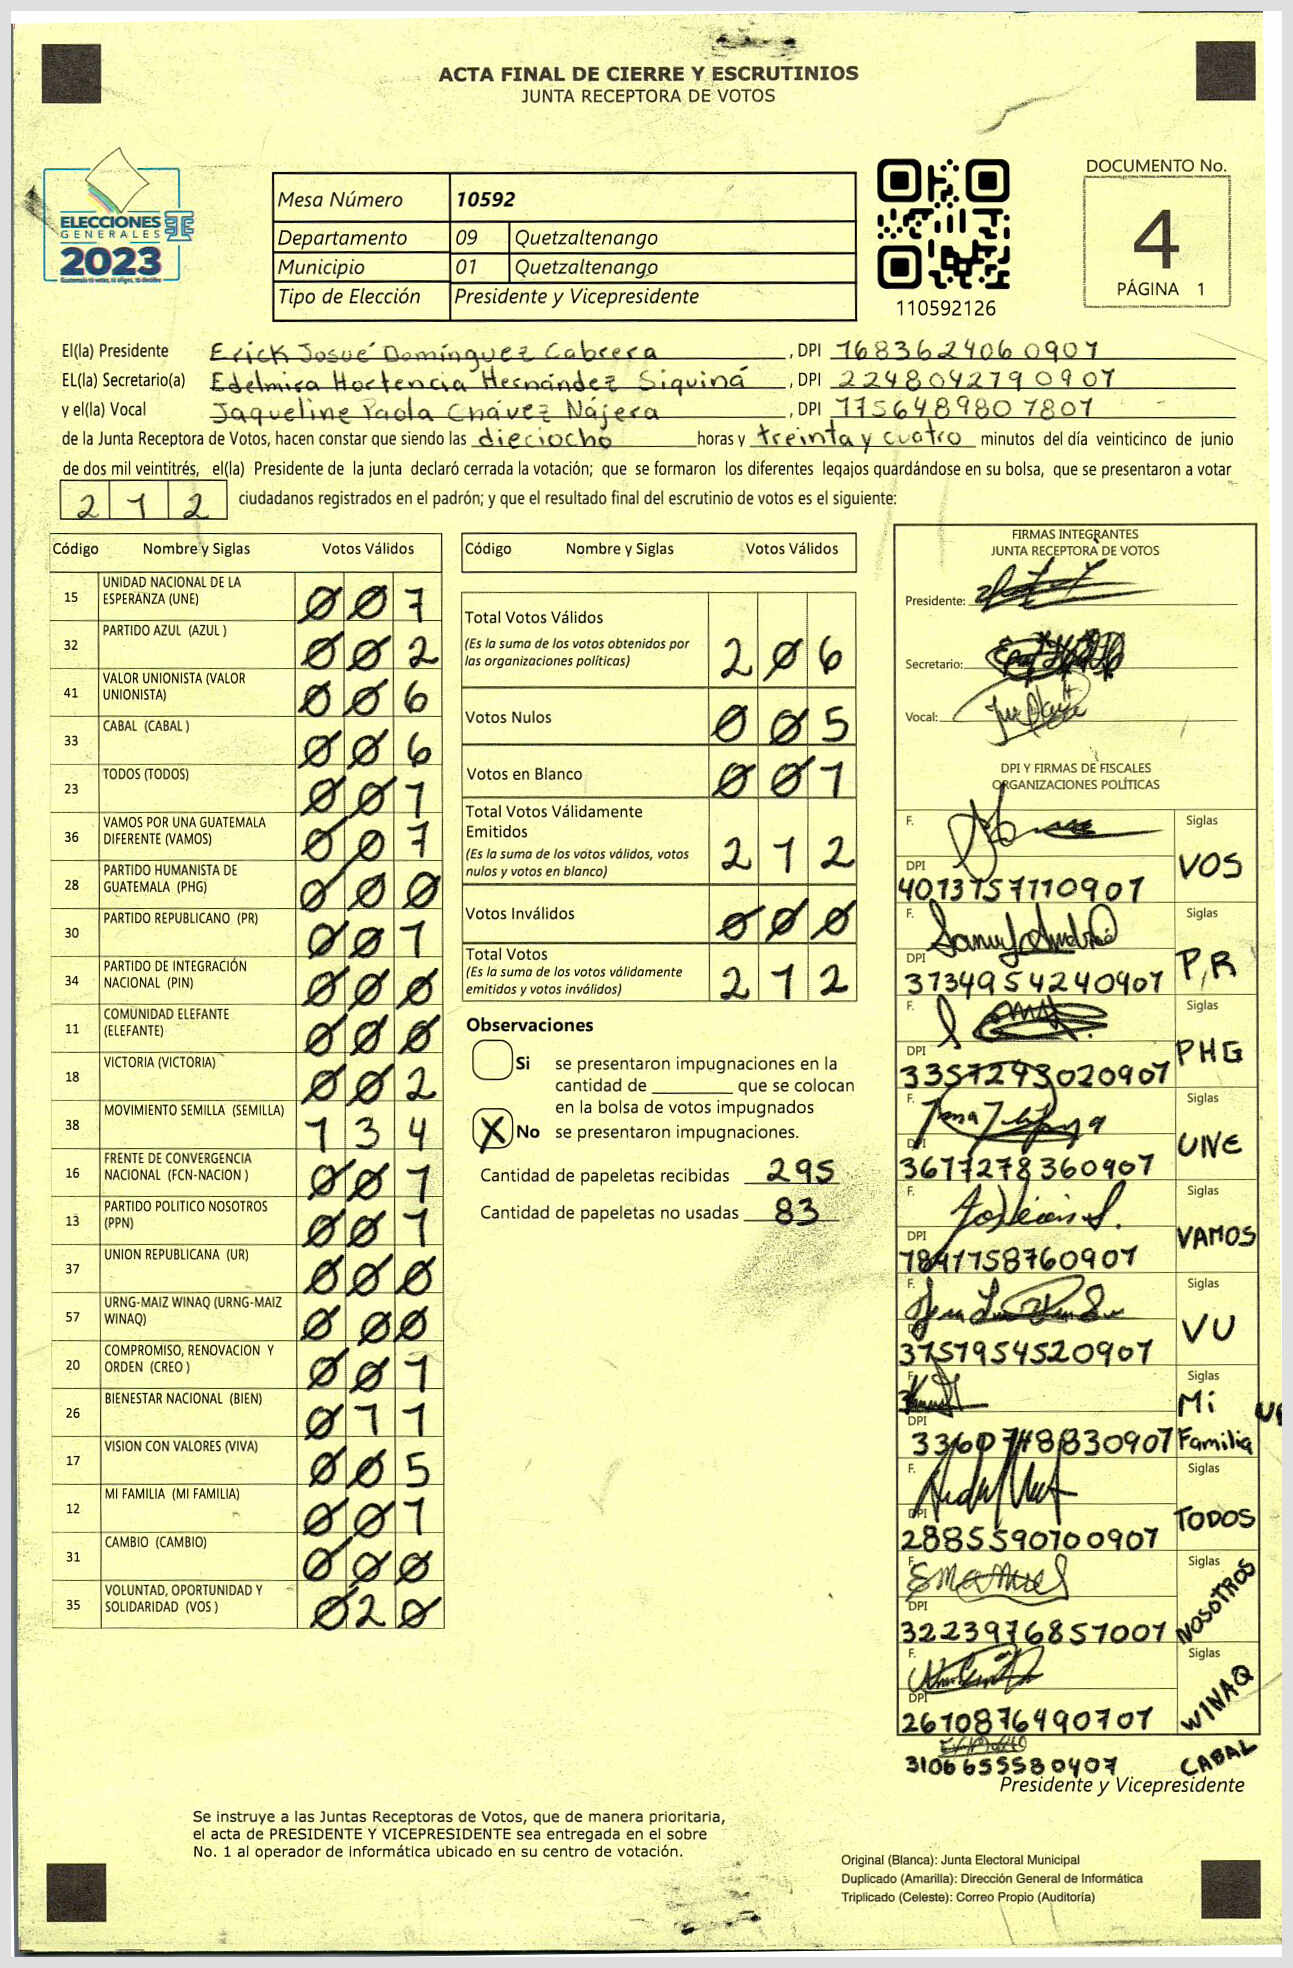 ACTA FINAL DE CIERRE Y ESCRUTINIOS
JUNTA RECEPTORA DE VOTOS
ELECCIONES
GENERALES
2023
Mesa Número 10592
Departamento 09 Quetzaltenango
Municipio 01 Quetzaltenango
Tipo de Elección Presidente y Vicepresidente
110592126
DOCUMENTO No.
4
PÁGINA 1
El(la) Presidente Erick Josué Domínguez Cabrera, DPI 1683624060901
EL(la) Secretario(a) Edelmira Hortencia Hernández Siquiná, DPI 2248042790901
y el(la) Vocal Jaqueline Paola Chávez Nájera, DPI 1756489801801
de la Junta Receptora de Votos, hacen constar que siendo las dieciocho horas y treinta y cuatro minutos del día veinticinco de junio
de dos mil veintitrés, el(la) Presidente de la junta declaró cerrada la votación; que se formaron los diferentes legajos quardándose en su bolsa, que se presentaron a votar
212 ciudadanos registrados en el padrón; y que el resultado final del escrutinio de votos es el siguiente:
Código Nombre y Siglas Votos Válidos
15 UNIDAD NACIONAL DE LA ESPERANZA (UNE) 007
32 PARTIDO AZUL (AZUL ) 002
41 VALOR UNIONISTA (VALOR UNIONISTA) 006
33 CABAL (CABAL ) 006
23 TODOS (TODOS) 001
36 VAMOS POR UNA GUATEMALA DIFERENTE (VAMOS) 007
28 PARTIDO HUMANISTA DE GUATEMALA (PHG) 000
30 PARTIDO REPUBLICANO (PR) 001
34 PARTIDO DE INTEGRACIÓN NACIONAL (PIN) 000
11 COMUNIDAD ELEFANTE (ELEFANTE) 000
18 VICTORIA (VICTORIA) 002
38 MOVIMIENTO SEMILLA (SEMILLA) 134
16 FRENTE DE CONVERGENCIA NACIONAL (FCN-NACION ) 001
13 PARTIDO POLITICO NOSOTROS (PPN) 001
37 UNION REPUBLICANA (UR) 000
57 URNG-MAIZ WINAQ (URNG-MAIZ WINAQ) 000
20 COMPROMISO, RENOVACION Y ORDEN (CREO ) 001
26 BIENESTAR NACIONAL (BIEN) 011
17 VISION CON VALORES (VIVA) 005
12 MI FAMILIA (MI FAMILIA) 001
31 CAMBIO (CAMBIO) 000
35 VOLUNTAD, OPORTUNIDAD Y SOLIDARIDAD (VOS ) 020
Código Nombre y Siglas Votos Válidos
Total Votos Válidos 206
(Es la suma de los votos obtenidos por
las organizaciones políticas)
Votos Nulos 005
Votos en Blanco 001
Total Votos Válidamente
Emitidos 212
(Es la suma de los votos válidos, votos
nulos y votos en blanco)
Votos Inválidos 000
Total Votos 212
(Es la suma de los votos válidamente
emitidos y votos inválidos)
Observaciones
Si se presentaron impugnaciones en la
cantidad de ________ que se colocan
en la bolsa de votos impugnados
X No se presentaron impugnaciones.
Cantidad de papeletas recibidas 295
Cantidad de papeletas no usadas 83
FIRMAS INTEGRANTES
JUNTA RECEPTORA DE VOTOS
Presidente:
Secretario:
Vocal:
DPI Y FIRMAS DE FISCALES
ORGANIZACIONES POLÍTICAS
F. Siglas
DPI 4013151110901 VOS
F. Siglas
DPI 3734954240901 P,R
F. Siglas
DPI 3351293020901 PHG
F. Siglas
DPI 3617278360901 UNE
F. Siglas
DPI 1841158760901 VAMOS
F. Siglas
DPI 3151954520901 VU
F. Siglas
DPI 3360748830901 Mi Familia
F. Siglas
DPI 2885590100901 TODOS
F. Siglas
DPI 3223976851001 NOSOTROS
F. Siglas
DPI 2610876490701 WINAQ
3106655580407 CABAL
Presidente y Vicepresidente
Se instruye a las Juntas Receptoras de Votos, que de manera prioritaria,
el acta de PRESIDENTE Y VICEPRESIDENTE sea entregada en el sobre
No. 1 al operador de informática ubicado en su centro de votación.
Original (Blanca): Junta Electoral Municipal
Duplicado (Amarilla): Dirección General de Informática
Triplicado (Celeste): Correo Propio (Auditoría)